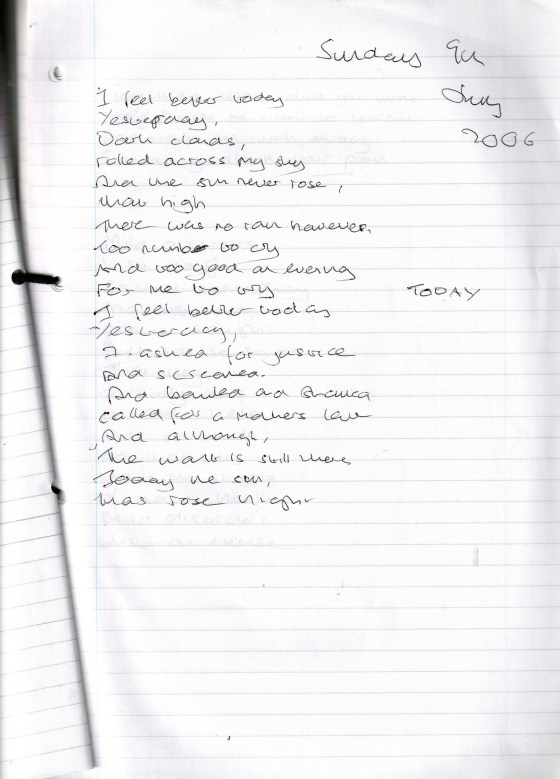 Sunday 9th
July
2006
I feel better today
Yesterday,
Dark clouds,
rolled across my sky
And the sun never rose,
that high
There was no rain however,
Too numb to cry
And too good an evening
For me to try
TODAY
I feel better today
Yesterday,
I ashed for justice
And screamed.
And bawled and shouted
called for a mothers love
And although,
The wall is still there
Today the sun,
Has rose higher